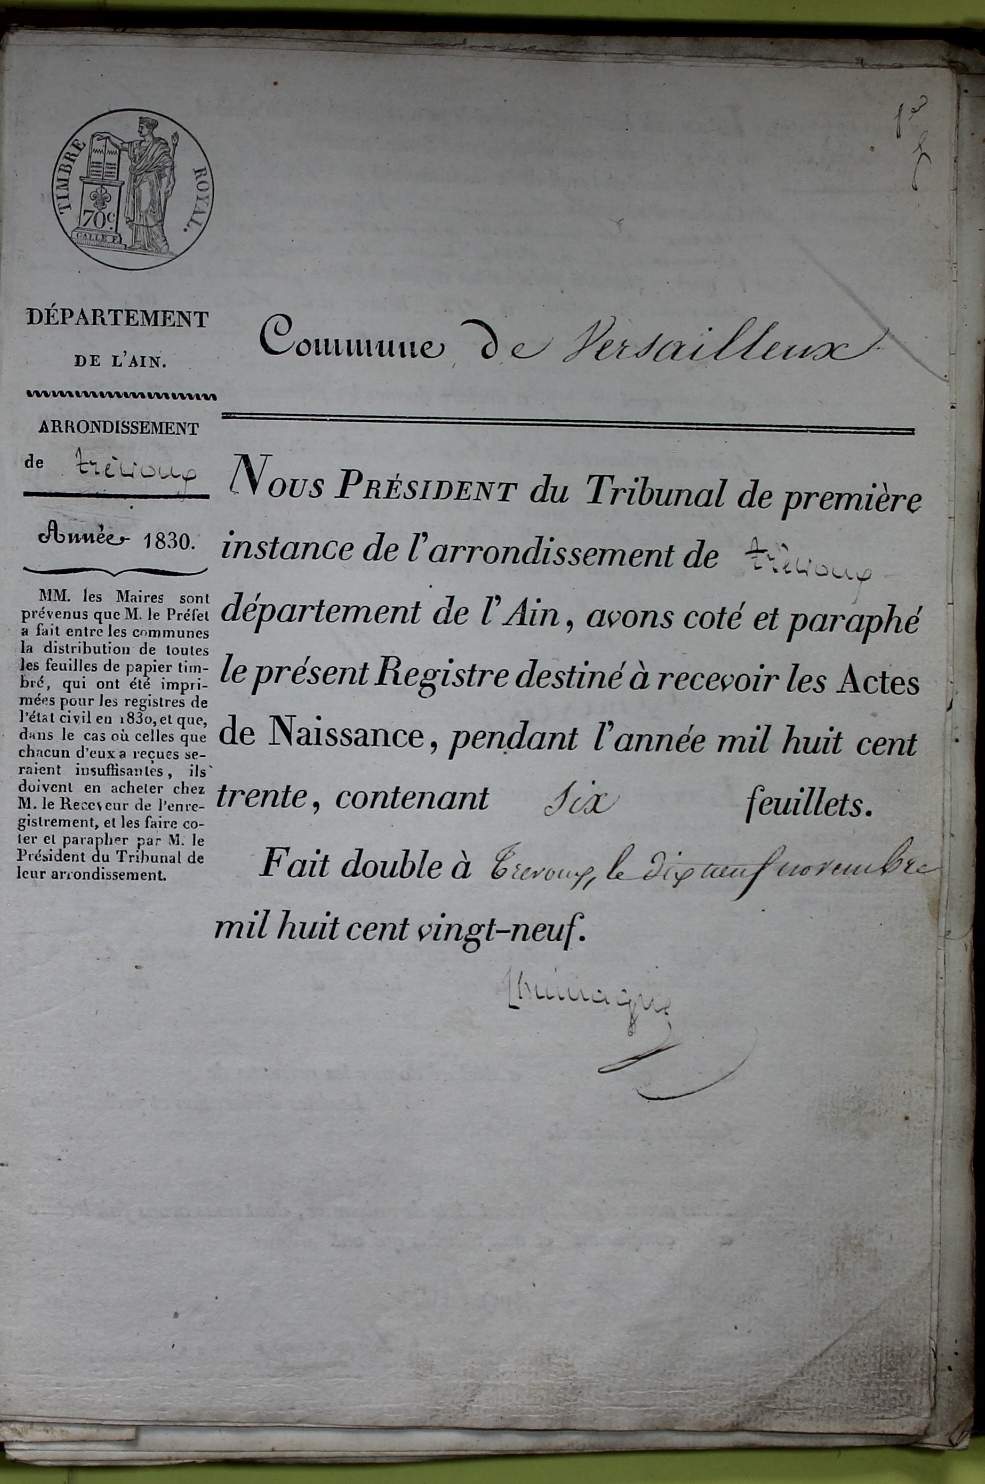 TIMBRE ROYAL.
70c
1er
DÉPARTEMENT
DE L'AIN.
ARRONDISSEMENT
de trévoux
Année 1830.
MM. les Maires sont
prévenus que M. le Préfet
a fait entre les communes
la distribution de toutes
les feuilles de papier tim-
bré, qui ont été impri-
mées pour les registres de
l'état civil en 1830, et que,
dans le cas où celles que
chacun d'eux a reçues se-
raient insuffisantes, ils
doivent en acheter chez
M. le Receveur de l'enre-
gistrement, et les faire co-
ter et parapher par M. le
Président du Tribunal de
leur arrondissement.
Commune de Versailleux
NOUS PRÉSIDENT du Tribunal de première
instance de l'arrondissement de trévoux
département de l'Ain, avons coté et paraphé
le présent Registre destiné à recevoir les Actes
de Naissance, pendant l'année mil huit cent
trente, contenant six feuillets.
Fait double à Trevoux, le dix neuf novembre
mil huit cent vingt-neuf.